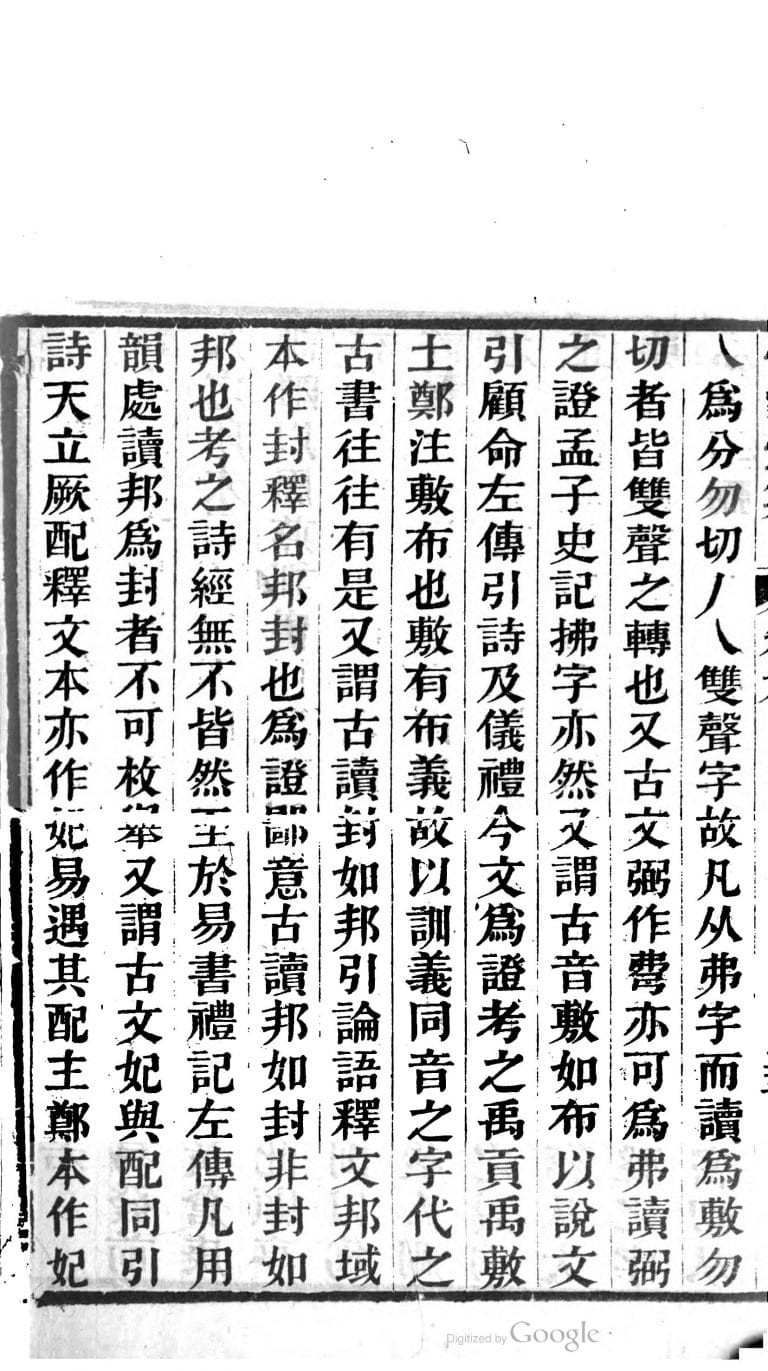 乀爲分勿切丿乀雙聲字故凡从弗字而讀爲敷勿
切者皆雙聲之轉也又古文弼作𢐀亦可爲弗讀弼
之證孟子史記拂字亦然又謂古音敷如布以說文
引顧命左傳引詩及儀禮今文爲證考之禹貢禹敷
土鄭注敷布也敷有布義故以訓義同音之字代之
古書往往有是又謂古讀封如邦引論語釋文邦域
本作封釋名邦封也爲證鄙意古讀邦如封非封如
邦也考之詩經無不皆然至於易書禮記左傳凡用
韻處讀邦爲封者不可枚舉又謂古文妃與配同引
詩天立厥配釋文本亦作妃易遇其配主鄭本作妃
Digitized by Google